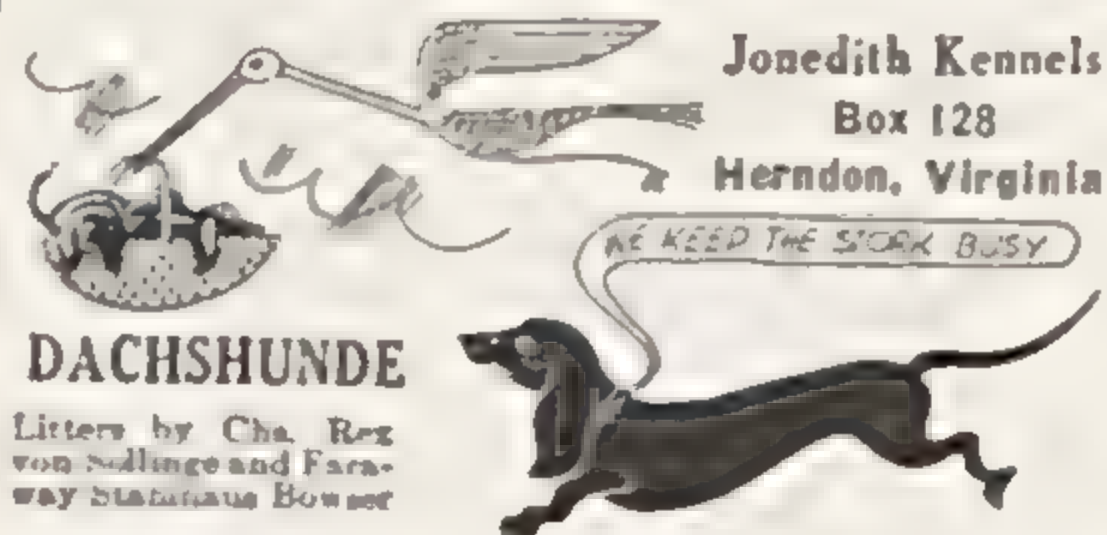 Jonedith Kennels
Box 128
Herndon, Virginia
WE KEEP THE STORK BUSY
DACHSHUNDE
Litters by Chs. Rex
von and Fara-
way Bowser